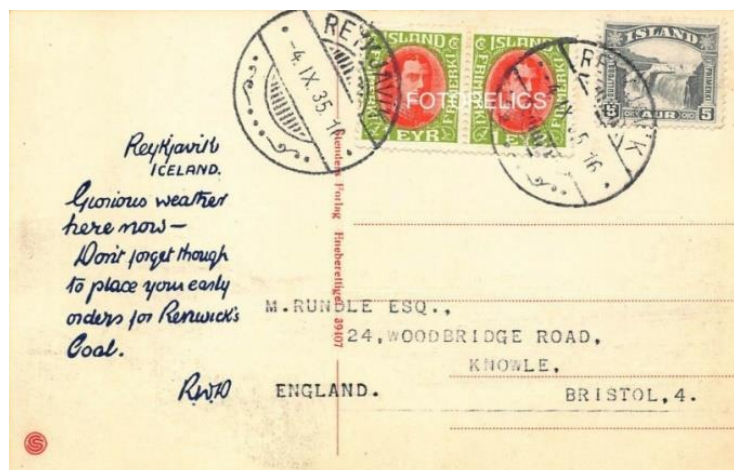 REYKJAVIK
-4.IX.35.16
ISLAND
FRÍMERKI
1 EYR
ISLAND
FRÍMERKI
1 EYR
FOTORELICS
REYKJAVIK
-4.IX.35.16
ISLAND
5 AUR 5
Reykjavik
ICELAND.
Glorious weather
here now —
Don't forget though
to place your early
orders for Renwick's
Coal.
RWD
Stenders Forlag Eneberettiget 39407
M.RUNDLE ESQ.,
24,WOODBRIDGE ROAD,
KNOWLE,
ENGLAND. BRISTOL,4.
S